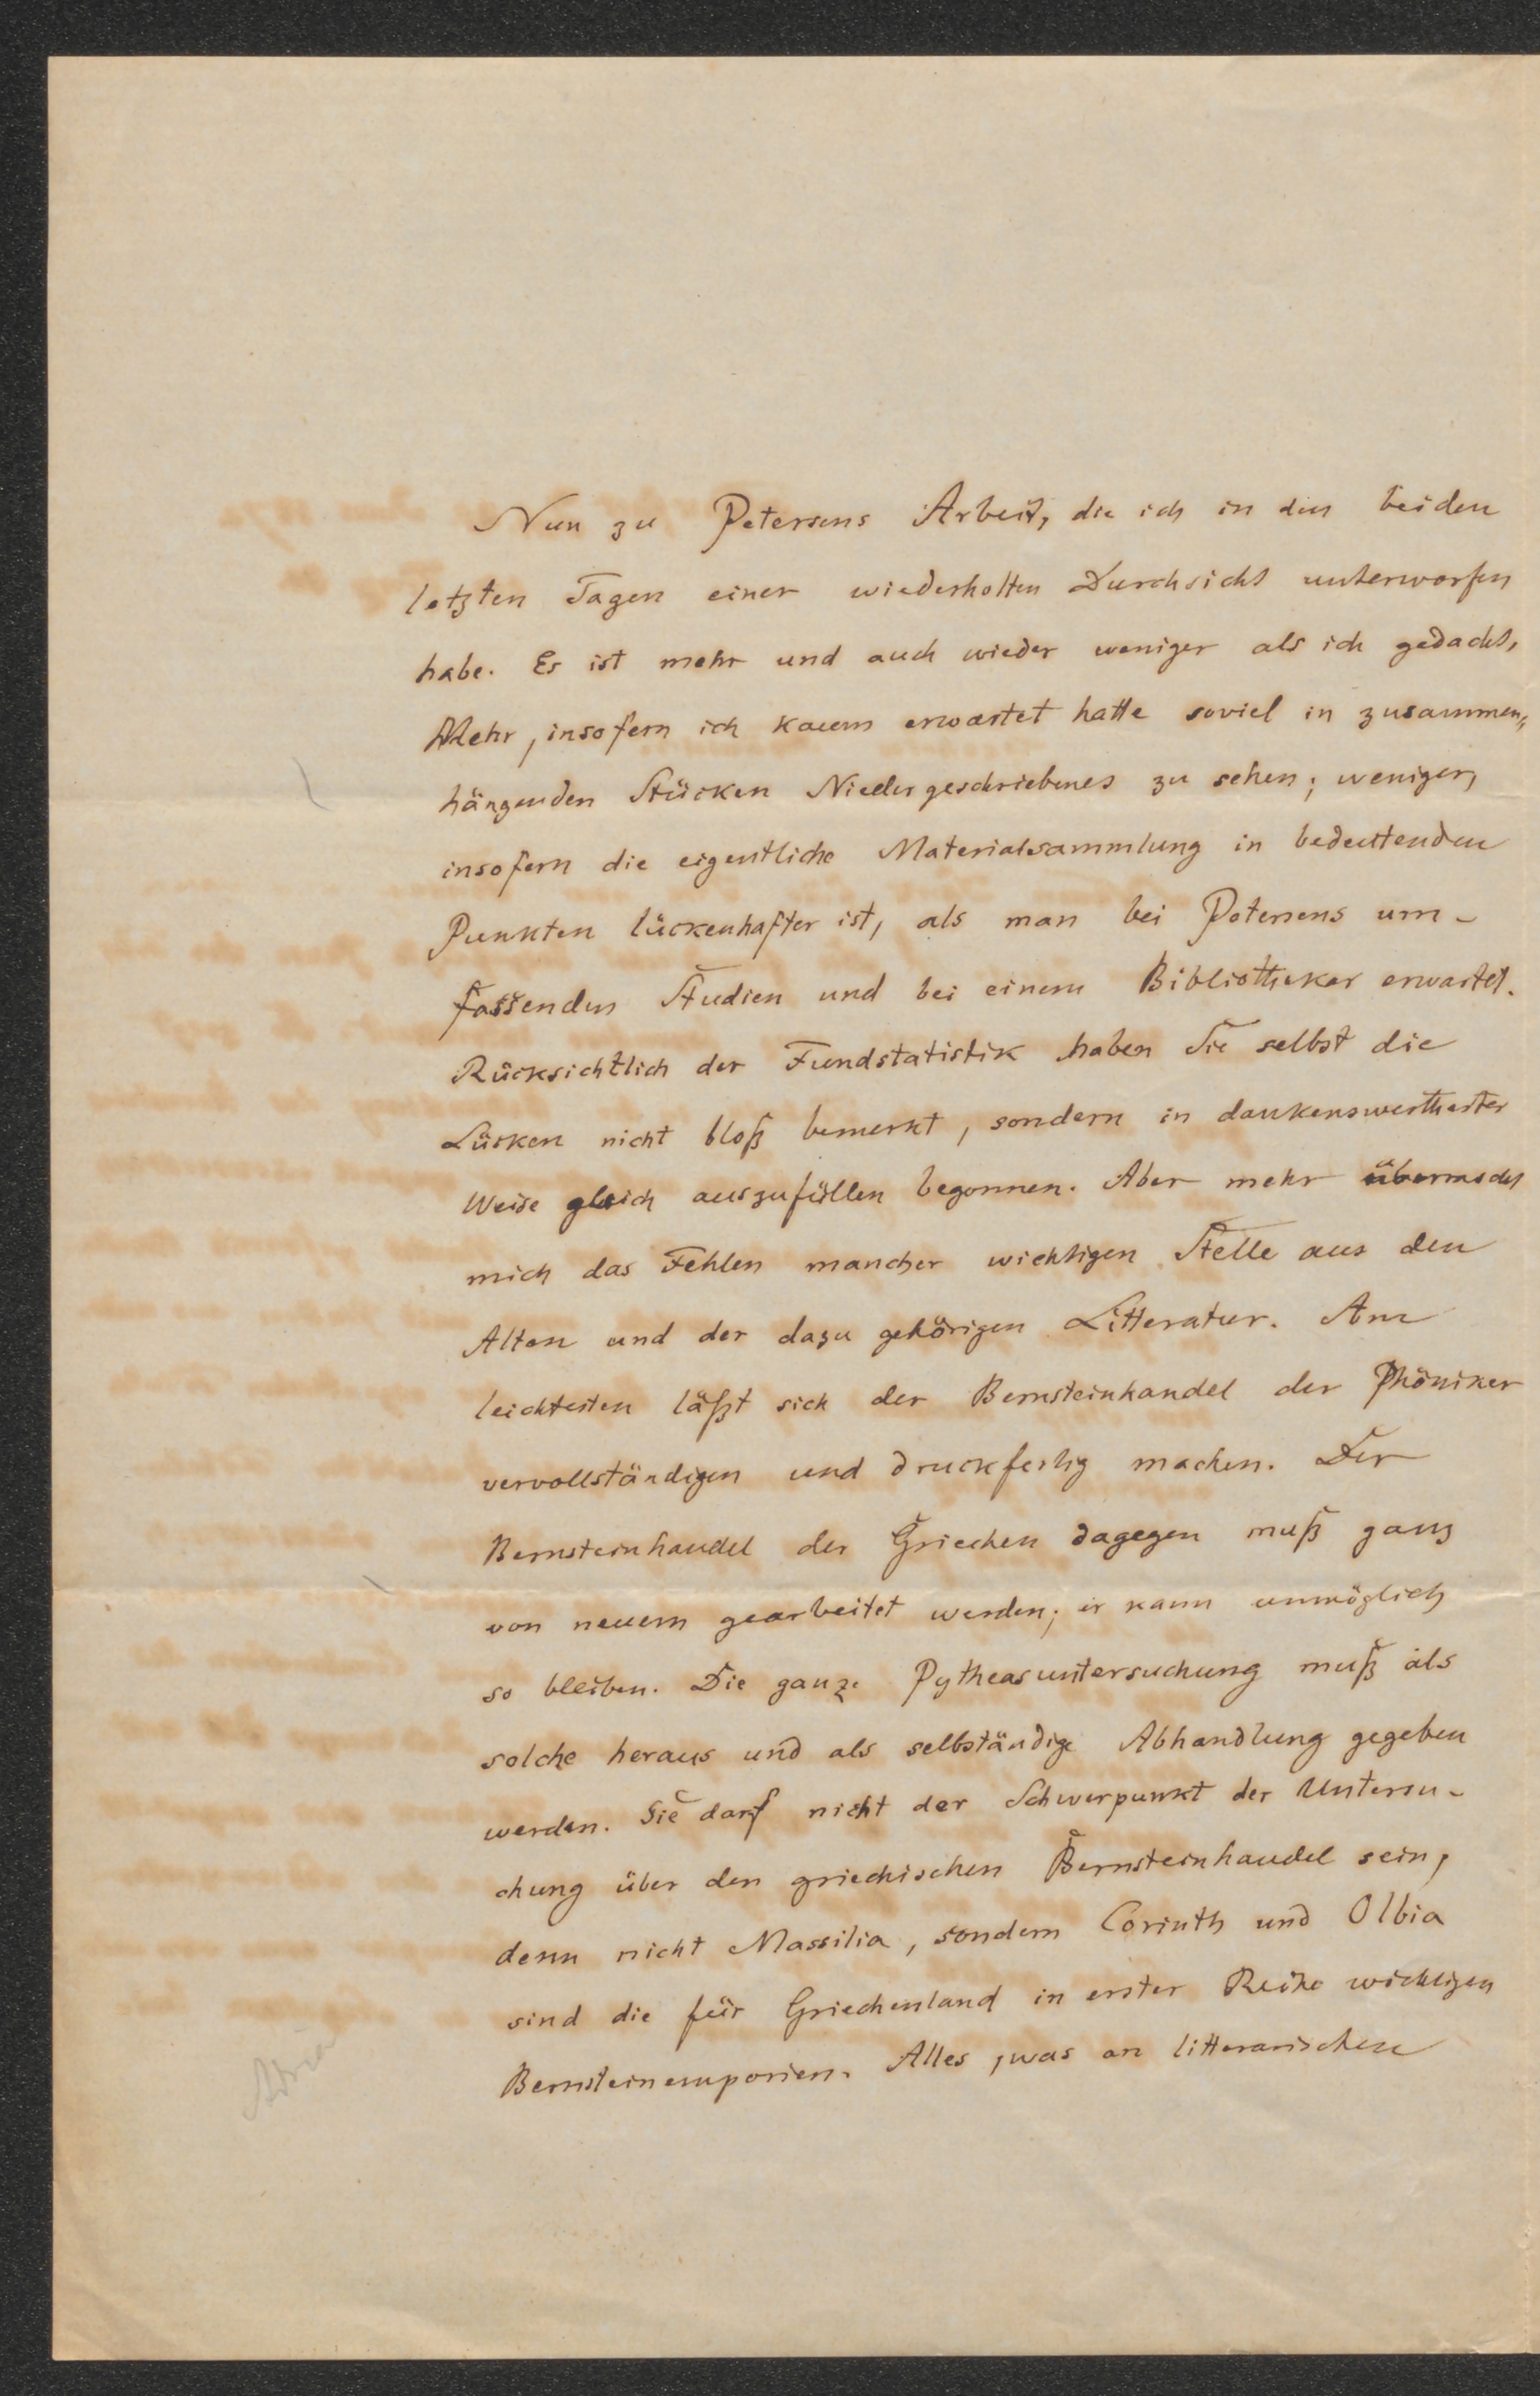 Nun zu Petersens Arbeit, die ich in den beiden
letzten Tagen einer wiederholten Durchsicht unterworfen
habe. Es ist mehr und auch wieder weniger als ich gedacht,
Mehr, insofern ich kaum erwartet hatte soviel in zusammen=
hängenden Stücken Niedergeschriebenes zu sehen; weniger,
insofern die eigentliche Materialsammlung in bedeutenden
Punkten lückenhafter ist, als man bei Petersens um-
fassenden Studien und bei einem Bibliothekar erwartet.
Rücksichtlich der Fundstatistik haben Sie selbst die
Lücken nicht bloß bemerkt, sondern in dankenswerthester
Weise gleich auszufüllen begonnen. Aber mehr überrascht
mich das Fehlen mancher wichtigen Stelle aus den
Alten und der dazu gehörigen Litteratur. Am
leichtesten läßt sich der Bernsteinhandel der Phöniker
vervollständigen und druckfertig machen. Der
Bernsteinhandel der Griechen dagegen muß ganz
von neuem gearbeitet werden; er kann unmöglich
so bleiben. Die ganze Pytheasuntersuchung muß als
solche heraus und als selbständige Abhandlung gegeben
werden. Sie darf nicht der Schwerpunkt der Untersu-
chung über den griechischen Bernsteinhandel sein,
denn nicht Massilia, sondern Corinth und Olbia
sind die für Griechenland in erster Reihe wichtigen
Bernsteinemporien. Alles, was an litterarischen
Adria